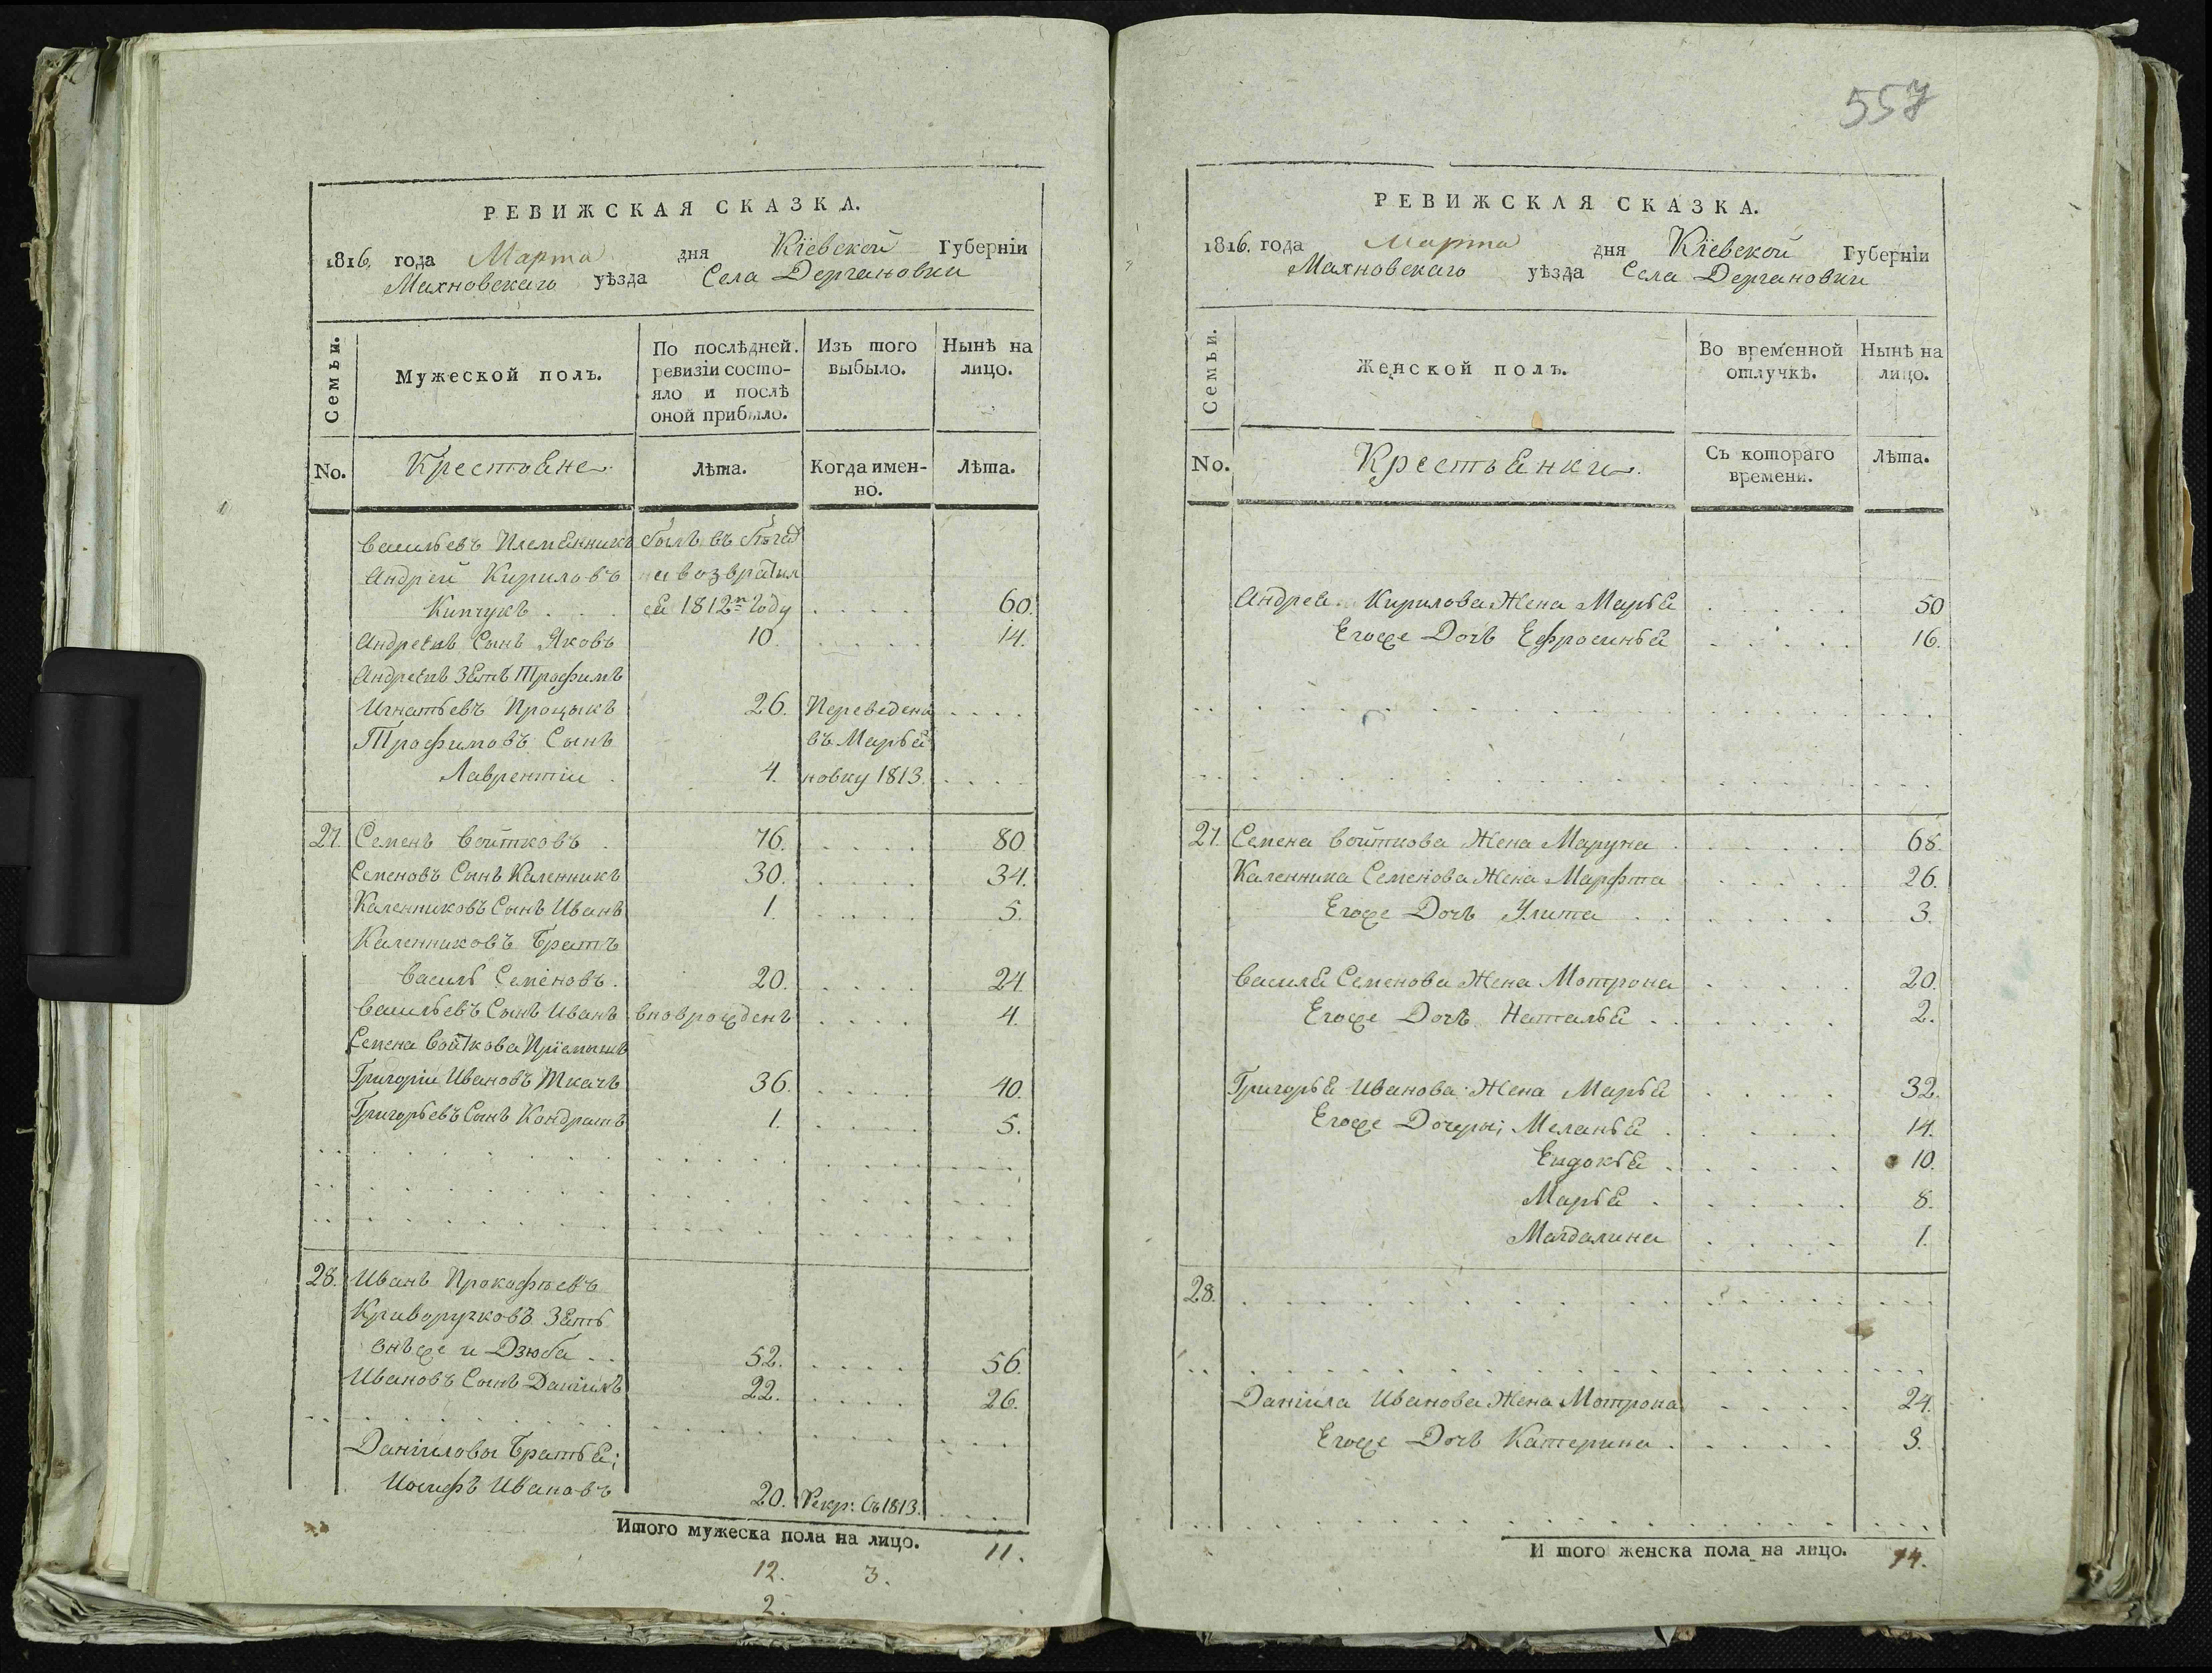 РЕВИЖСКАЯ СКАЗКА.
1816. года Марта дня Кіевской Губерніи
Махновскаго уѣзда Села Дергановки
Семьи.
Мужеской полъ.
По послѣдней ревизіи состо-
яло и послѣ
оной прибыло.
Изъ того
выбыло.
Нынѣ на
лицо.
No.
Крестьяне
Лѣта.
Когда имен-
но.
Лѣта.
Васильевъ Племянникъ былъ въ
Андрей Кириловъ и возвратил
Кипчукъ . . . ся 1812го Году . . . . 60.
Андреевъ Сынъ Яковъ 10. . . . . 14.
Андреевъ Зять Трофимъ
Игнатьевъ Процыкъ 26. Переведены . . . .
Трофимовъ Сынъ въ Марья
Лаврентіи . 4. новку 1813. . . . .
27. Семенъ Войтковъ . 76. . . . . 80
Семеновъ Сынъ Каленникъ 30. . . . . 34.
Каленниковъ Сынъ Иванъ 1. . . . . 5.
Каленниковъ Братъ
Василь Семеновъ. 20. . . . . 24
Васильевъ Сынъ Иванъ вноврожденъ . . . . 4.
Семена Войткова Пріемышъ
Григоріи Ивановъ Ткачъ 36. . . . . 40.
Григорьевъ Сынъ Кондратъ 1. . . . . 5.
28. Иванъ Прокофьевъ
Криворучковъ Зять
онъже и Дзюба . . 52. . . . . 56.
Ивановъ Сынъ Даніилъ 22. . . . . 26.
Даніиловы Братья;
Иосифъ Ивановъ 20. Рекр: Въ 1813. . . . .
Итого мужеска пола на лицо. 11.
12. 3.
2.
557
РЕВИЖСКАЯ СКАЗКА.
1816. года Марта дня Кіевской Губерніи
Махновскаго уѣзда Села Дергановки
Семьи.
Женской полъ.
Во временной
отлучкѣ.
Нынѣ на
лицо.
No.
Крестьянки.
Съ котораго
времени.
Лѣта.
Андрея Кирилова Жена Марья . . . . . 50
Егоже Дочь Ефросинья . . . . . 16.
27. Семена Войткова Жена Маруна . . . . . . 68.
Каленника Семенова Жена Марфта . . . . . 26.
Егоже Дочь Улита . . . . . . 3.
Василя Семенова Жена Мотрона . . . . . 20.
Егоже Дочь Наталья . . . . . . 2.
Григорья Иванова Жена Марья . . . . . 32.
Егоже Дочери; Меланья . . . . . 14.
Евдокья . . . . . 10.
Марья . . . . . 8.
Магдалина . . . . 1.
28.
Даніила Иванова Жена Мотрона . . . . . 24.
Егоже Дочь Катерина . . . . . . 3.
Итого женска пола на лицо. 14.